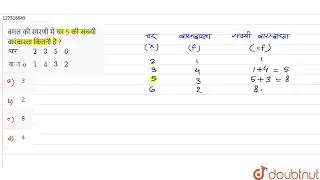 127358849
बगल की सारणी में चर 5 की संचयी
बारंबारता कितनी है ?
चर 2 3 5 6
बा o 1 4 3 2
a) 3
b) 2
c) 8
d) 4
चर बारम्बारता संचयी बारम्बारता
(x) (f) (cf)
2 1 1
3 4 1+4 = 5
5 3 5+3 = 8
6 2 8
doubtnut